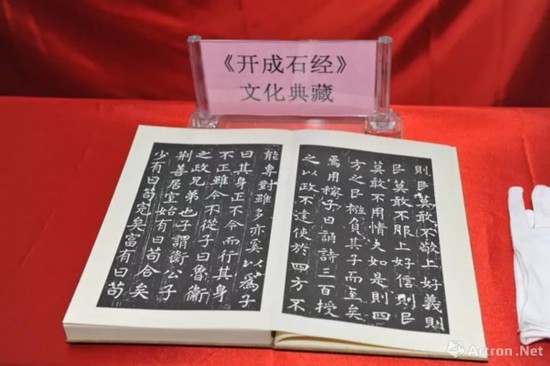 《开成石经》
文化典藏
則民莫敢不敬上好義則
民莫敢不服上好信則民
莫敢不用情夫如是則四
方之民襁負其子而至矣
焉用稼子曰誦詩三百授
之以政不達使於四方不
能專對雖多亦奚以爲子
曰其身正不令而行其身
不正雖令不從子曰魯衛
之政兄弟也子謂衛公子
荊善居室始有曰苟合矣
少有曰苟完矣富有曰苟
Artron.Net